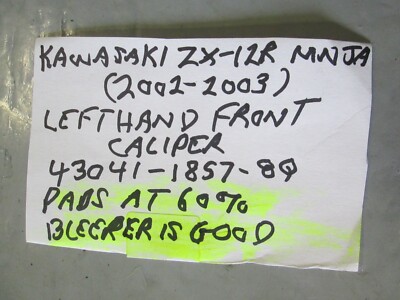 KAWASAKI ZX-12R NINJA
(2002-2003)
LEFTHAND FRONT
CALIPER
43041-1857-8Q
PADS AT 60%
BLEEPER IS GOOD